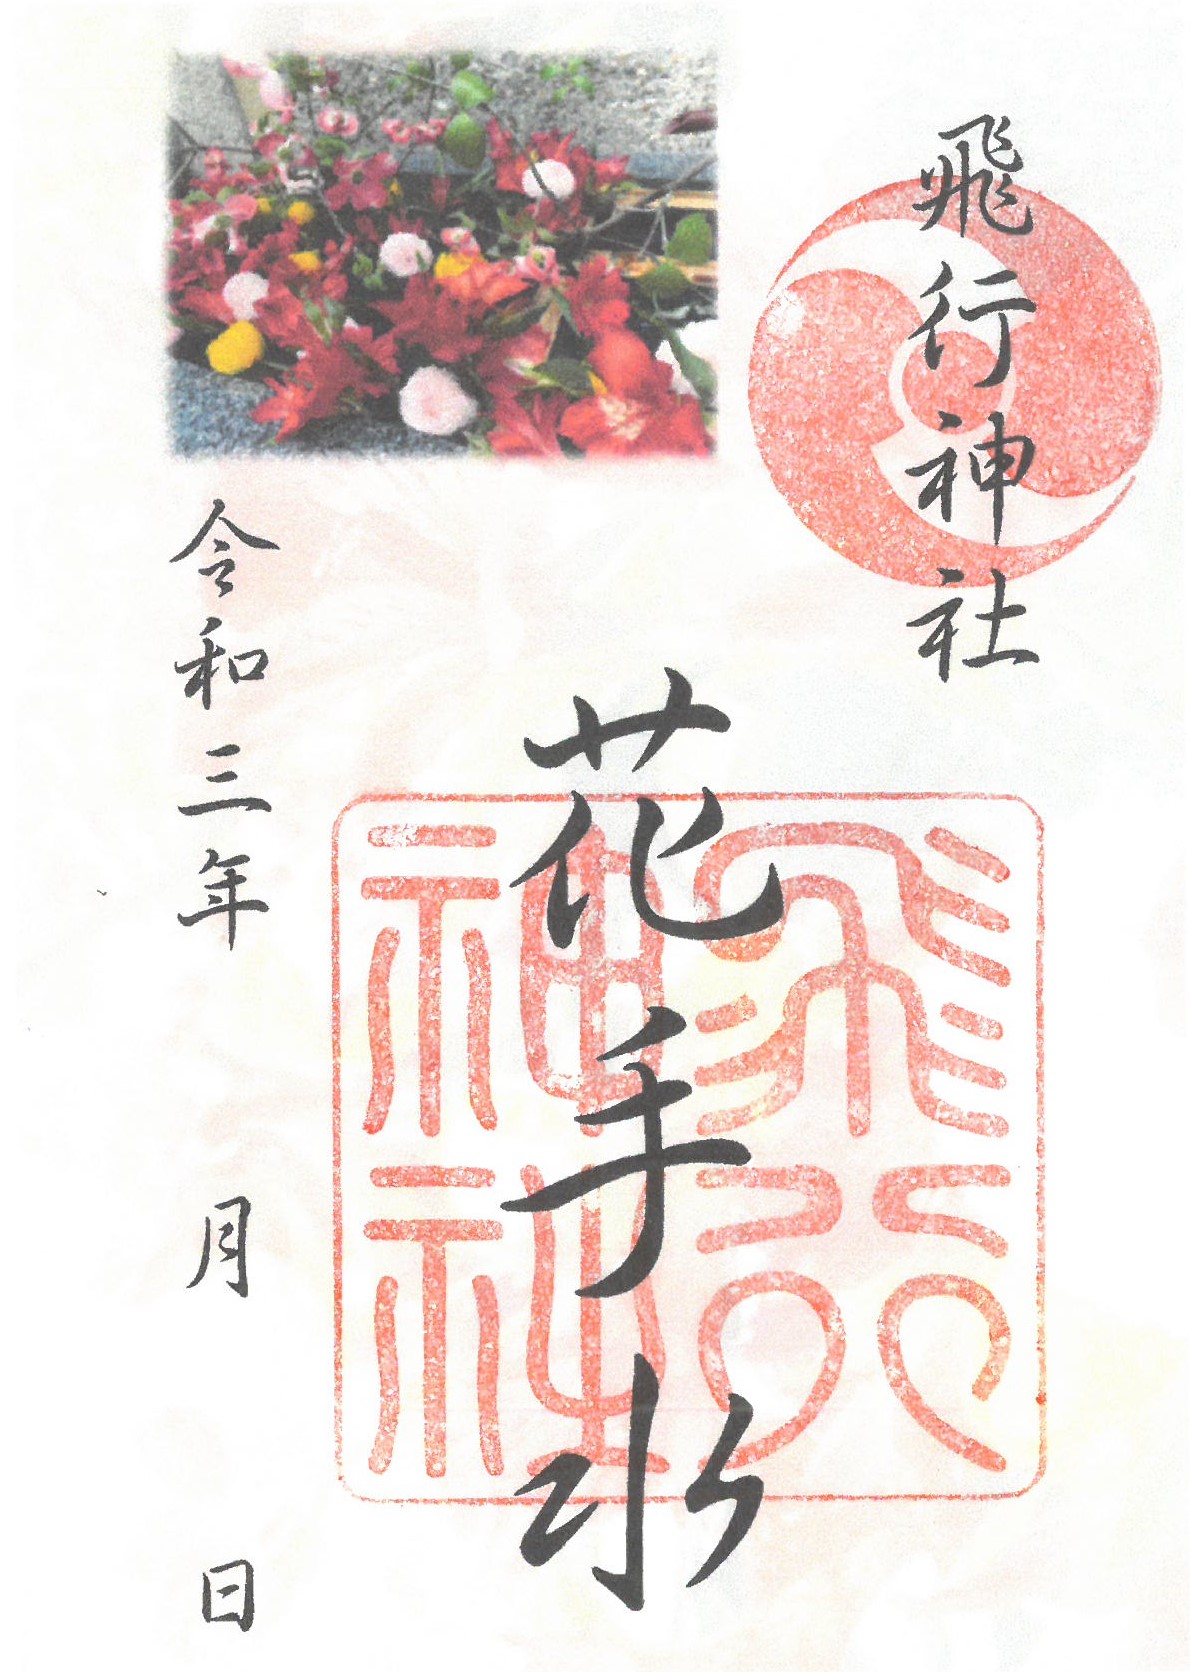 飛行神社
花手水
令和三年 月 日
飛行
神社